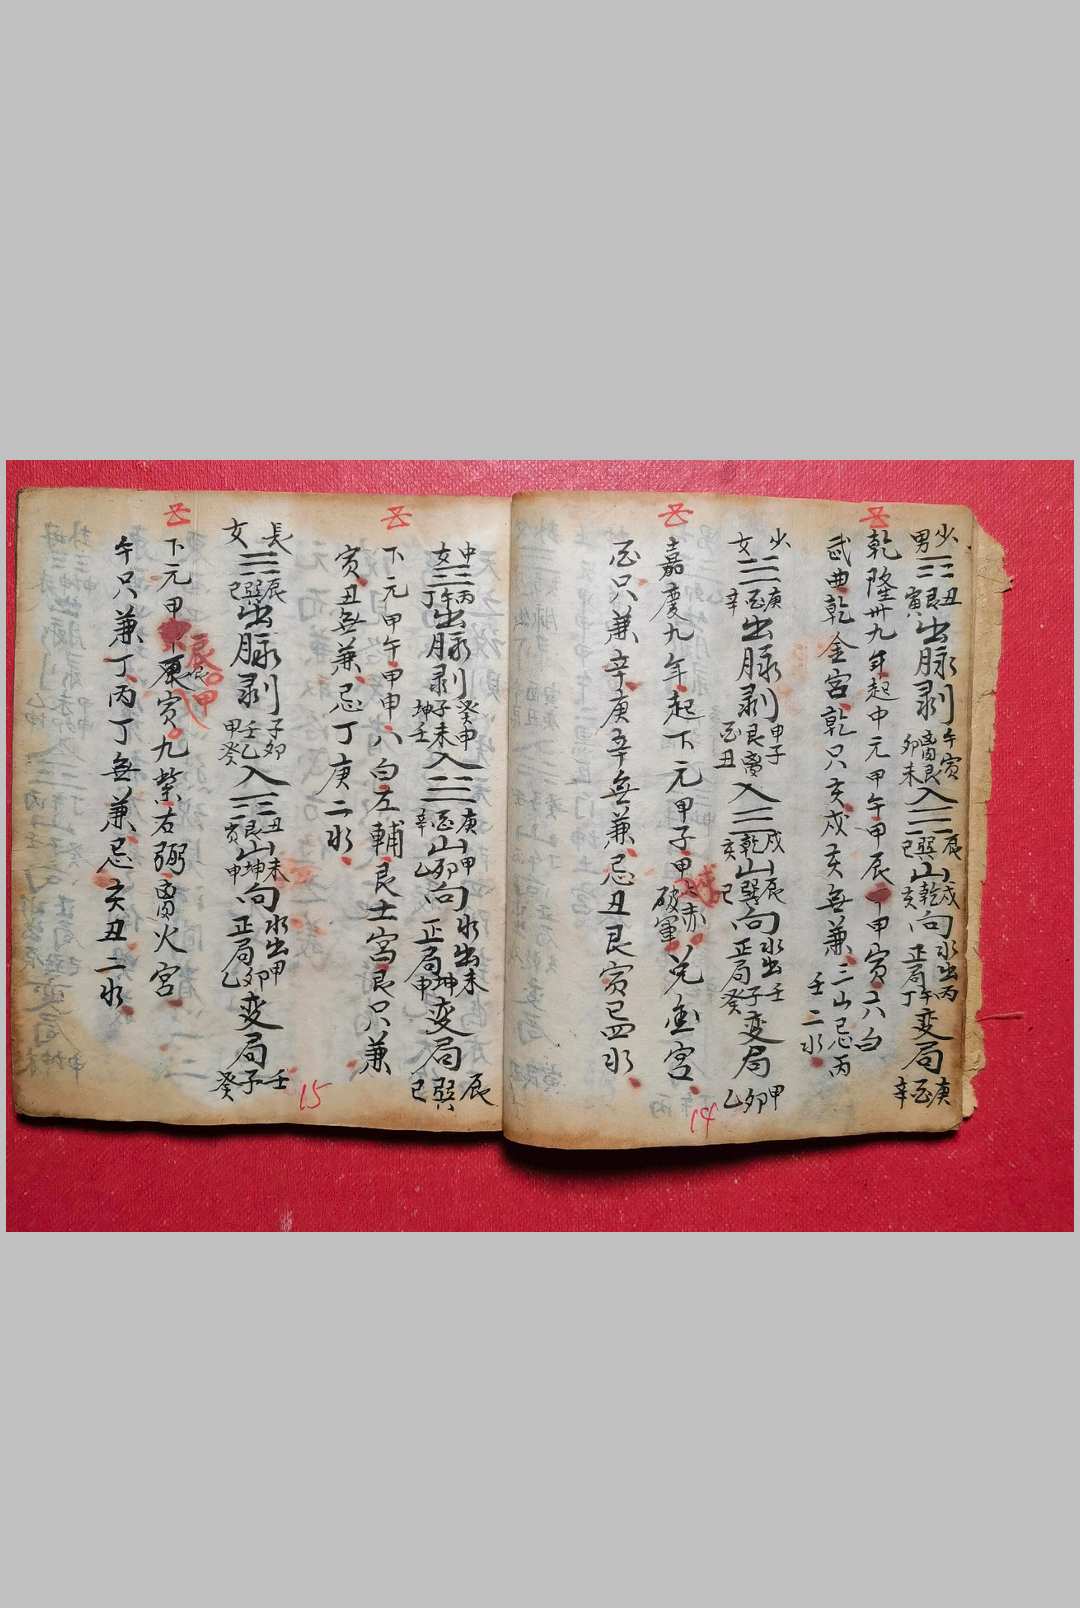 少男 ☶ 丑艮寅 出脉剥 午寅酉艮卯未 入 ☴ 辰巽巳 山 戌乾亥 向 水出丙 正局午丁 変局 庚酉辛
云
乾隆卅九年起中元甲午甲辰甲寅六白
武曲乾金宮乾只亥戌亥無兼三山忌丙壬二水
少女 ☱ 庚酉辛 出脉剥 甲子艮寅酉丑 入 ☰ 戌乾亥 山 辰巽巳 向 水出壬 正局子癸 変局 甲卯乙
云
嘉慶九年起下元甲子甲 七赤破軍兌金宮
酉只兼辛庚辛無兼忌丑艮寅巳四水
14
中女 ☲ 丙午丁 出脉剥 癸申子未坤壬 入 ☱ 庚酉辛 山 甲卯乙 向 水出未 正局坤申 変局 辰巽巳
云
下元甲午甲申八白左輔艮土宮艮只兼
寅丑無兼忌丁庚二水
長女 ☴ 辰巽巳 出脉剥 子卯壬乙甲癸 入 ☶ 丑艮寅 山 未坤申 向 水出甲 正局卯乙 変局 壬子癸
云
下元甲辰甲寅九紫右弼离火宮
午只兼丁丙丁無兼忌亥丑二水
15